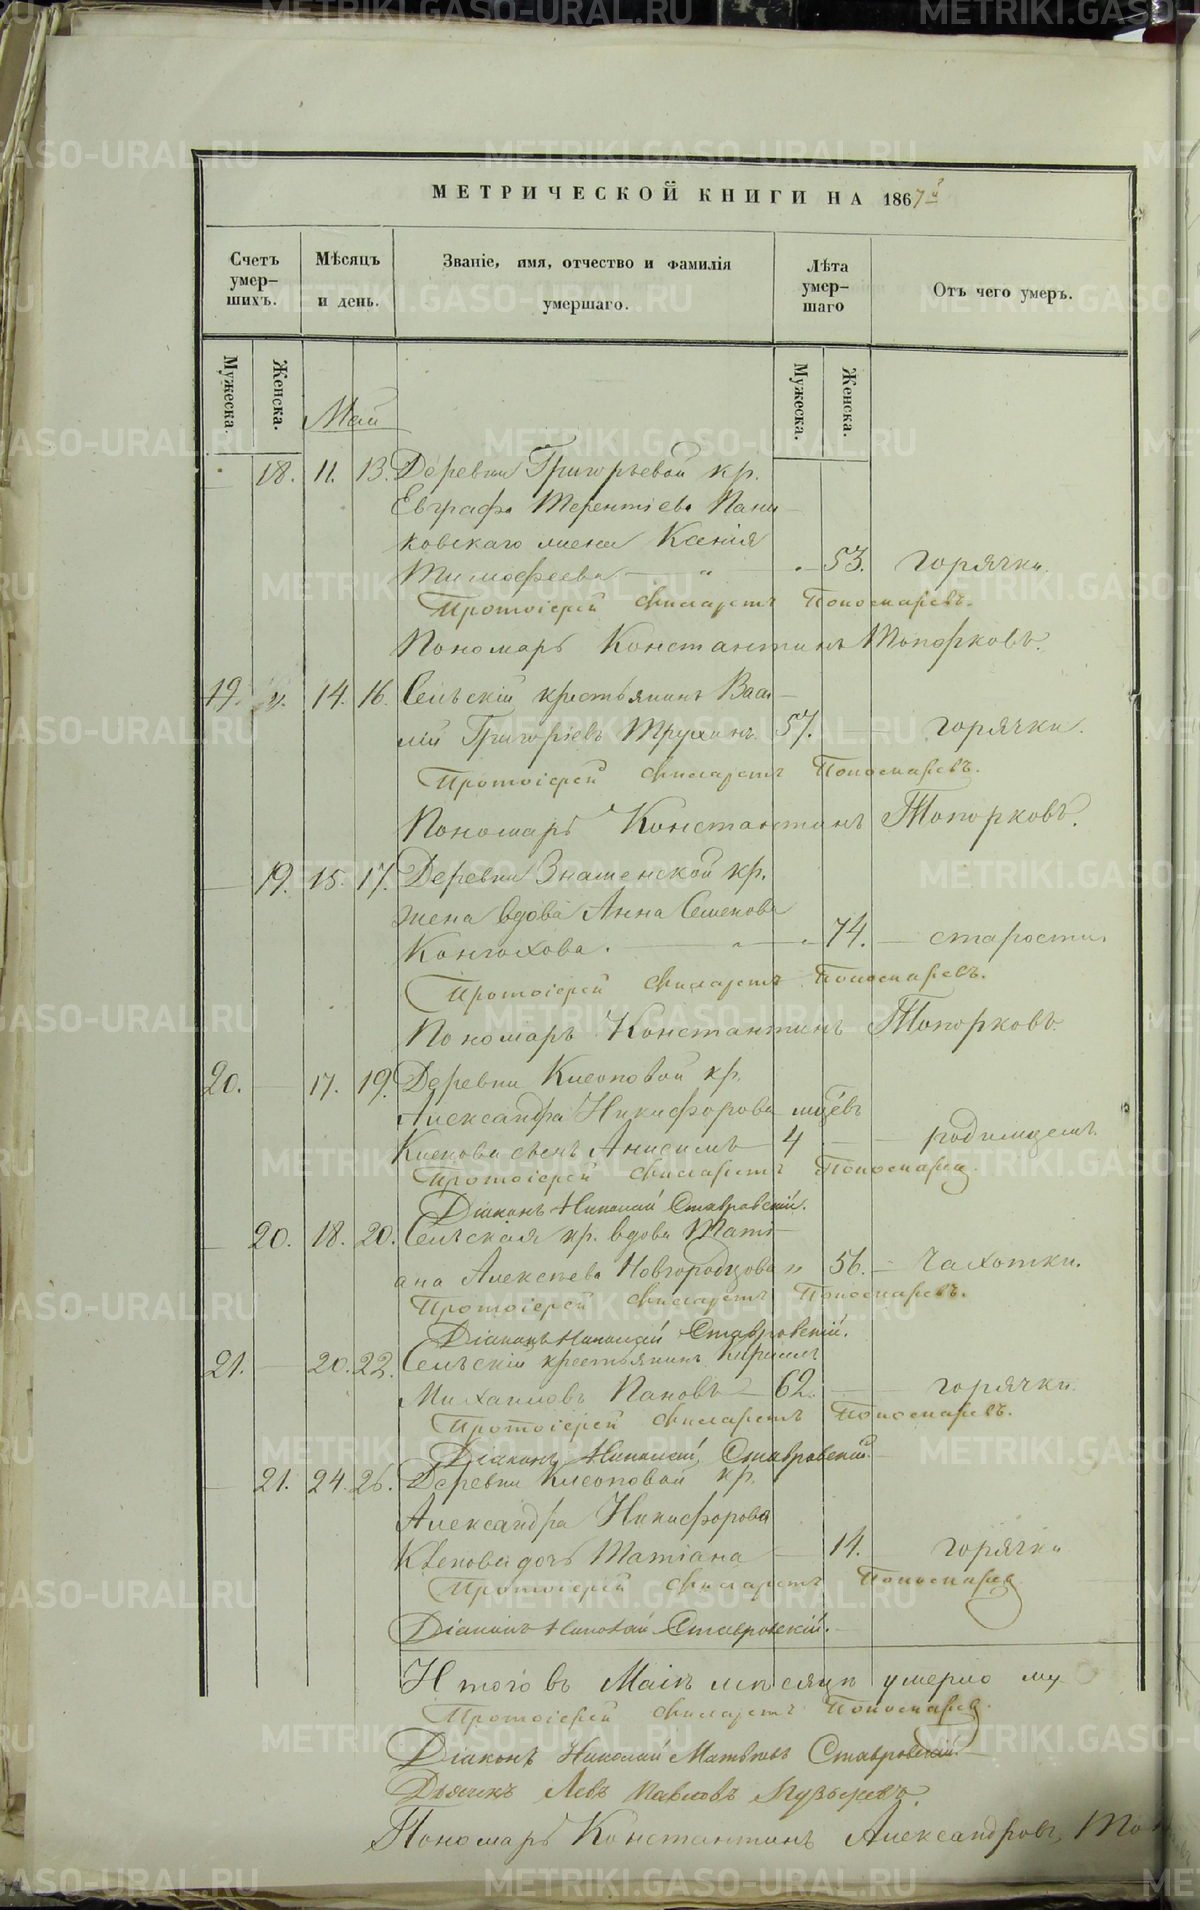 МЕТРИЧЕСКОЙ КНИГИ НА 1867й
Счетъ умер-шихъ.
Мѣсяцъ и день.
Званіе, имя, отчество и фамилія умершаго.
Лѣта умер-шаго
Отъ чего умеръ.
Мужеска. Женска.
Мужеска. Женска.
Май
18. 11. 13. Деревни Григорьевой кр.
Евграфа Терентіева Пани
ковскаго жена Ксенія
Тимофеева 53. горячки.
Протоіерей Филаретъ Пономаревъ.
Пономарь Константинъ Топорковъ.
19. 14. 16. Сельскій крестьянинъ Васи
лій Григоріевъ 57. горячки.
Протоіерей Филаретъ Пономаревъ.
Пономарь Константинъ Топорковъ.
19. 15. 17. Деревни Знаменской кр.
жена вдова Анна Семенова
74. старости.
Протоіерей Филаретъ Пономаревъ.
Пономарь Константинъ Топорковъ.
20. 17. 19. Деревни кр.
Александра Никифорова
сынъ Анисимъ 4 родимцемъ
Протоіерей Филаретъ Пономарев
Діаконъ Николай Ставровскій.
20. 18. 20. Сельская кр. вдова Таті
ана Алексѣева Новгородцова 56. Чахотки.
Протоіерей Филаретъ Пономаревъ.
Діаконъ Николай Ставровскій.
21. 20. 22. Сельскій крестьянинъ Кириллъ
Михаиловъ Пановъ 62. горячки
Протоіерей Филаретъ Пономаревъ.
Діаконъ Николай Ставровскій
21. 24. 26. Деревни кр.
Александра Никифорова
дочь Татіана 14. горячки
Протоіерей Филаретъ Пономарев
Діаконъ Николай Ставровскій.
Итого въ Маіѣ мѣсяцѣ умерло му
Протоіерей Филаретъ Пономарев
Діаконъ Николай Матвѣевъ Ставровскій
Дьячекъ Левъ Павловъ Пузыревъ.
Пономарь Константинъ Александровъ Топ
METRIKI.GASO-URAL.RU